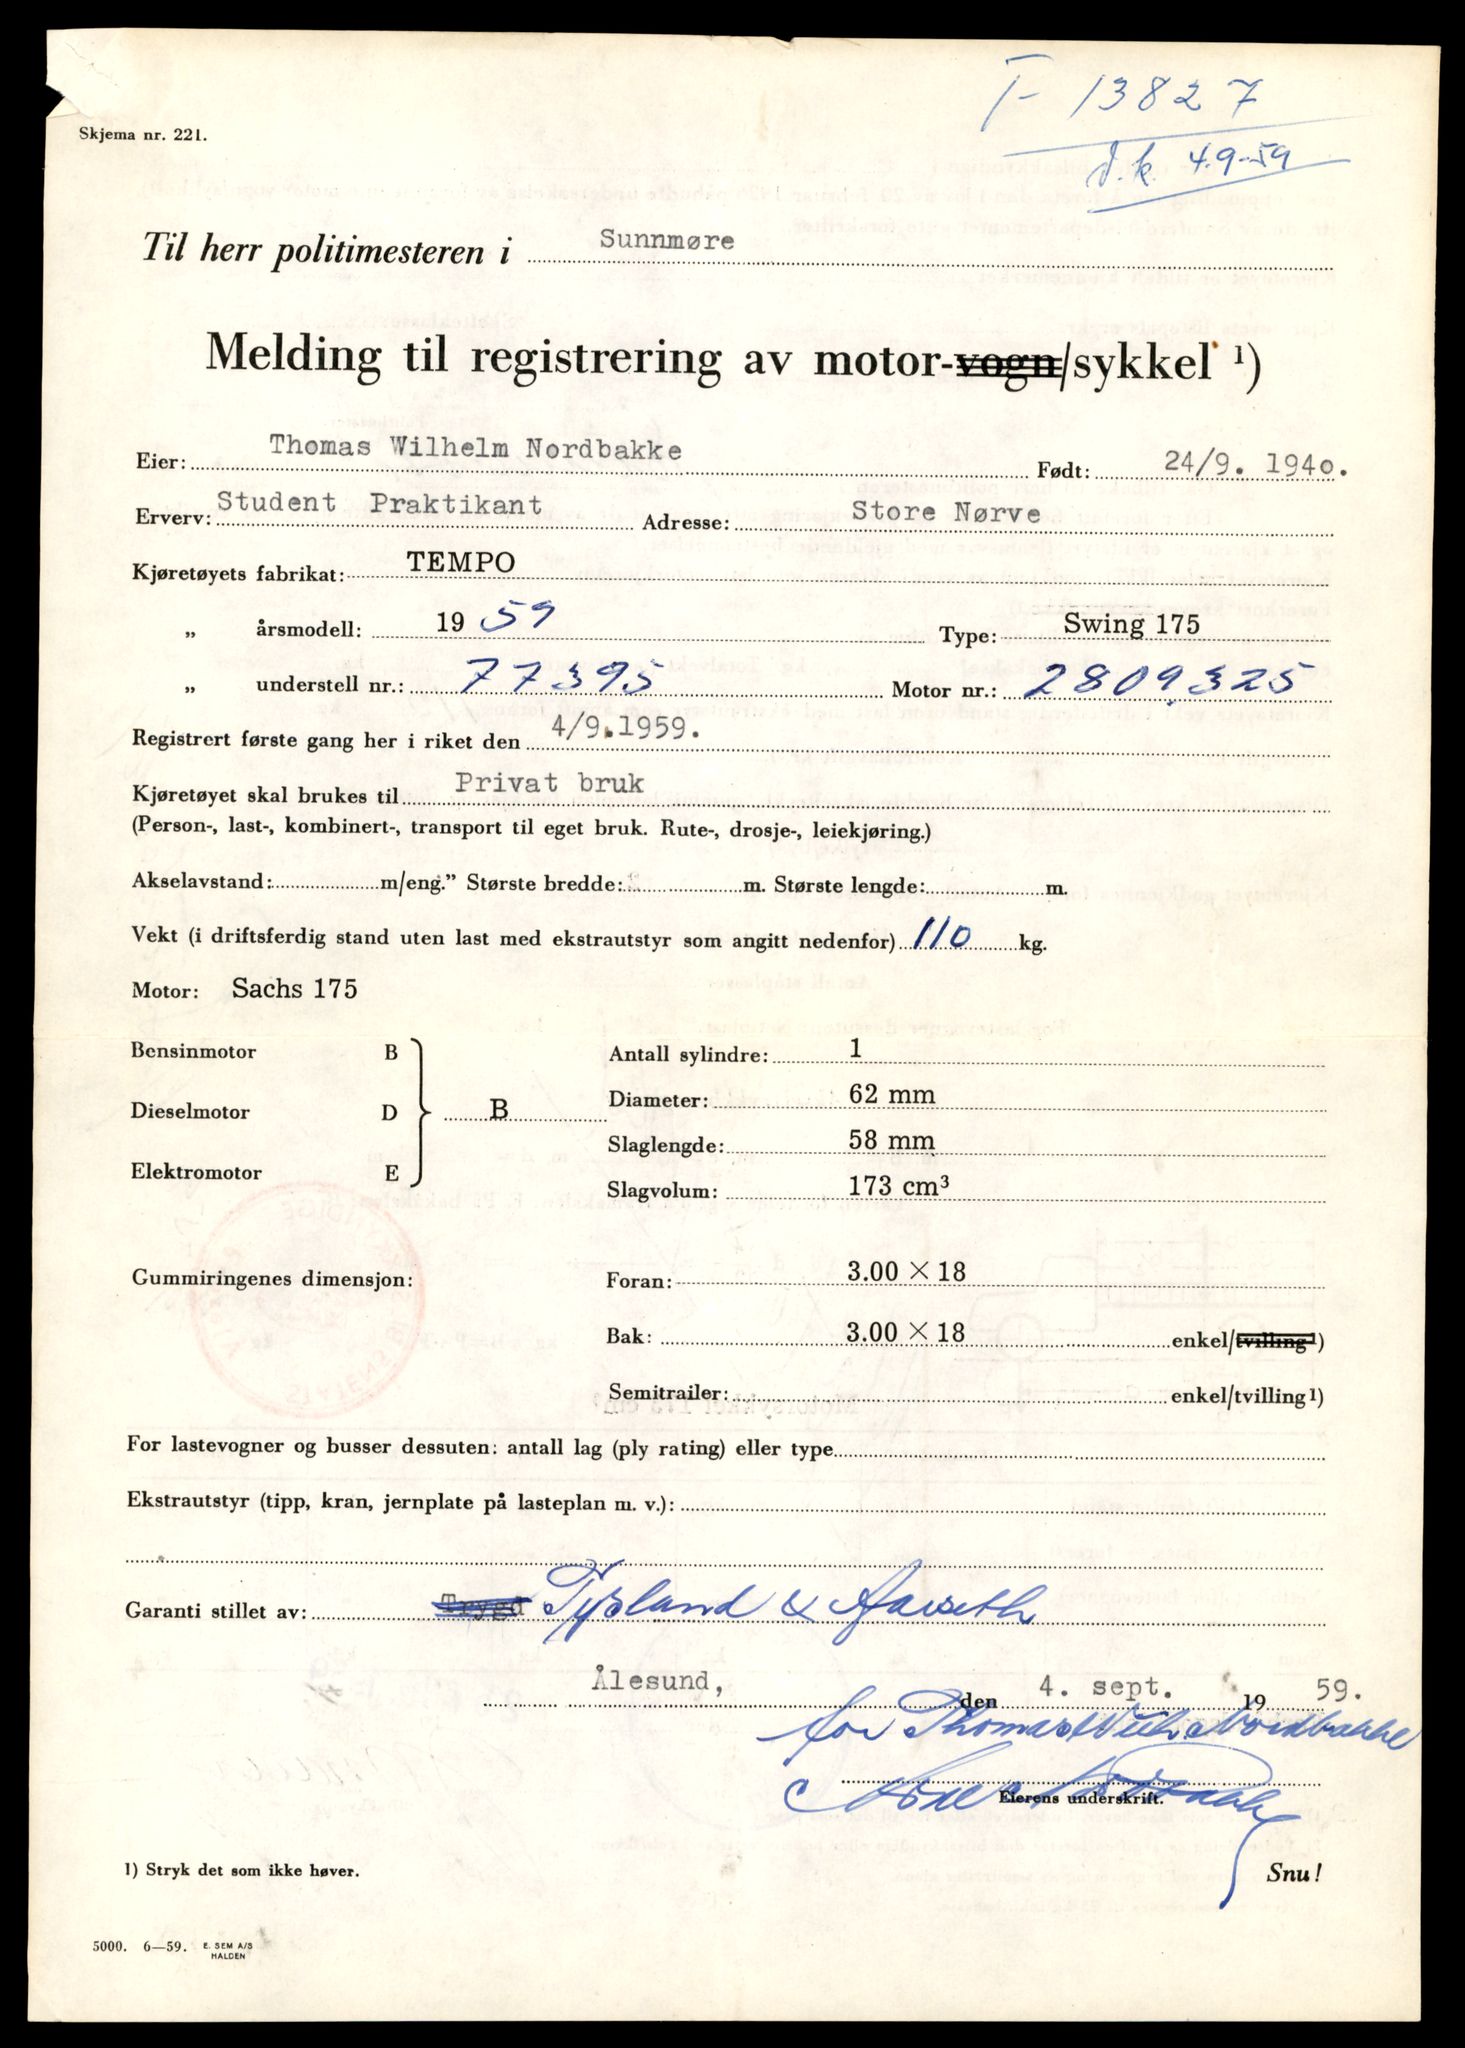 T- 13827
d.k. 4.9-59
Skjema nr. 221.
Til herr politimesteren i Sunnmøre
Melding til registrering av motor-vogn/sykkel ¹)
Eier: Thomas Wilhelm Nordbakke Født: 24/9. 1940.
Erverv: Student Praktikant Adresse: Store Nørve
Kjøretøyets fabrikat: TEMPO
„ årsmodell: 19 59 Type: Swing 175
„ understell nr.: 77395 Motor nr.: 2809325
Registrert første gang her i riket den 4/9.1959.
Kjøretøyet skal brukes til Privat bruk
(Person-, last-, kombinert-, transport til eget bruk. Rute-, drosje-, leiekjøring.)
Akselavstand: m/eng.” Største bredde: m. Største lengde: m.
Vekt (i driftsferdig stand uten last med ekstrautstyr som angitt nedenfor) 110 kg.
Motor: Sachs 175
Bensinmotor B Antall sylindre: 1
Dieselmotor D B Diameter: 62 mm
Slaglengde: 58 mm
Elektromotor E Slagvolum: 173 cm³
Gummiringenes dimensjon: Foran: 3.00 × 18
Bak: 3.00 × 18 enkel/tvilling¹)
Semitrailer: enkel/tvilling¹)
For lastevogner og busser dessuten: antall lag (ply rating) eller type
Ekstrautstyr (tipp, kran, jernplate på lasteplan m. v.):
Garanti stillet av: Trygd Tysland & Aarseth
Ålesund, den 4. sept. 19 59.
for Thomas Wilh. Nordbakke
Eierens underskrift.
1) Stryk det som ikke høver. Snu!
5000. 6—59. E. SEM A/S
HALDEN